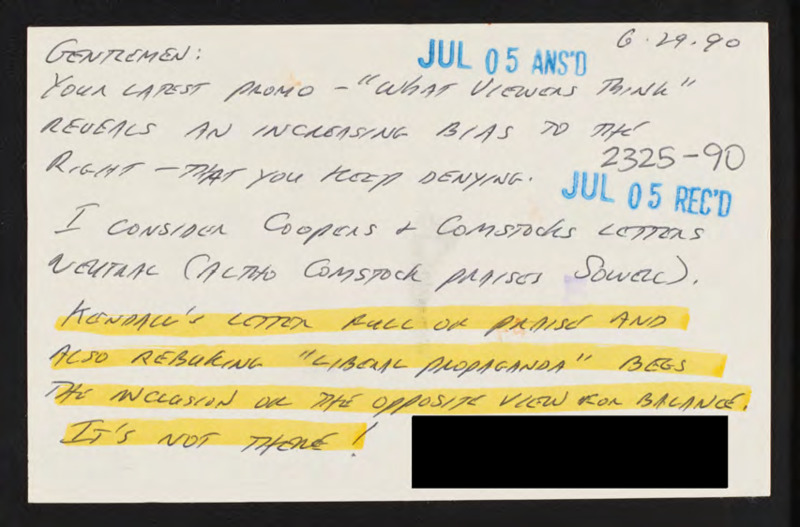 6-29-90
GENTLEMEN:
JUL 05 ANS'D
YOUR LATEST PROMO - "WHAT VIEWERS THINK"
REVEALS AN INCREASING BIAS TO THE
2325-90
RIGHT - THAT YOU KEEP DENYING.
JUL 05 REC'D
I CONSIDER COOPERS & COMSTOCKS LETTERS
NEUTRAL (ALTHO COMSTOCK PRAISES SOWELL).
KENDALL'S LETTER FULL OF PRAISE AND
ALSO REBUKING "LIBERAL PROPAGANDA" BEGS
THE INCLUSION OF THE OPPOSITE VIEW FOR BALANCE.
IT'S NOT THERE!